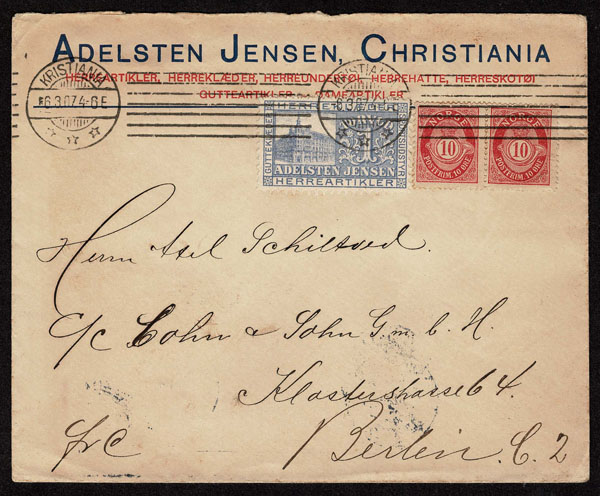 ADELSTEN JENSEN, CHRISTIANIA
HERREARTIKLER, HERREKLÆDER, HERREUNDERTØI, HERREHATTE, HERRESKOTØI
GUTTEARTIKLER DAMEARTIKLER
KRISTIANIA
6.3.07.4-6E
KRISTIANIA
6.3.07.4-6E
HERREKLÆDER
GUTTEKLÆDER
ADELSTEN JENSEN
HERREARTIKLER
NORGE
10
POSTFRIM. 10 ØRE
NORGE
10
POSTFRIM. 10 ØRE
Herrn Axel Schiltved.
c/c Cohn & Sohn G.m.b.H.
Klosterstrasse 64.
frC
Berlin. C. 2